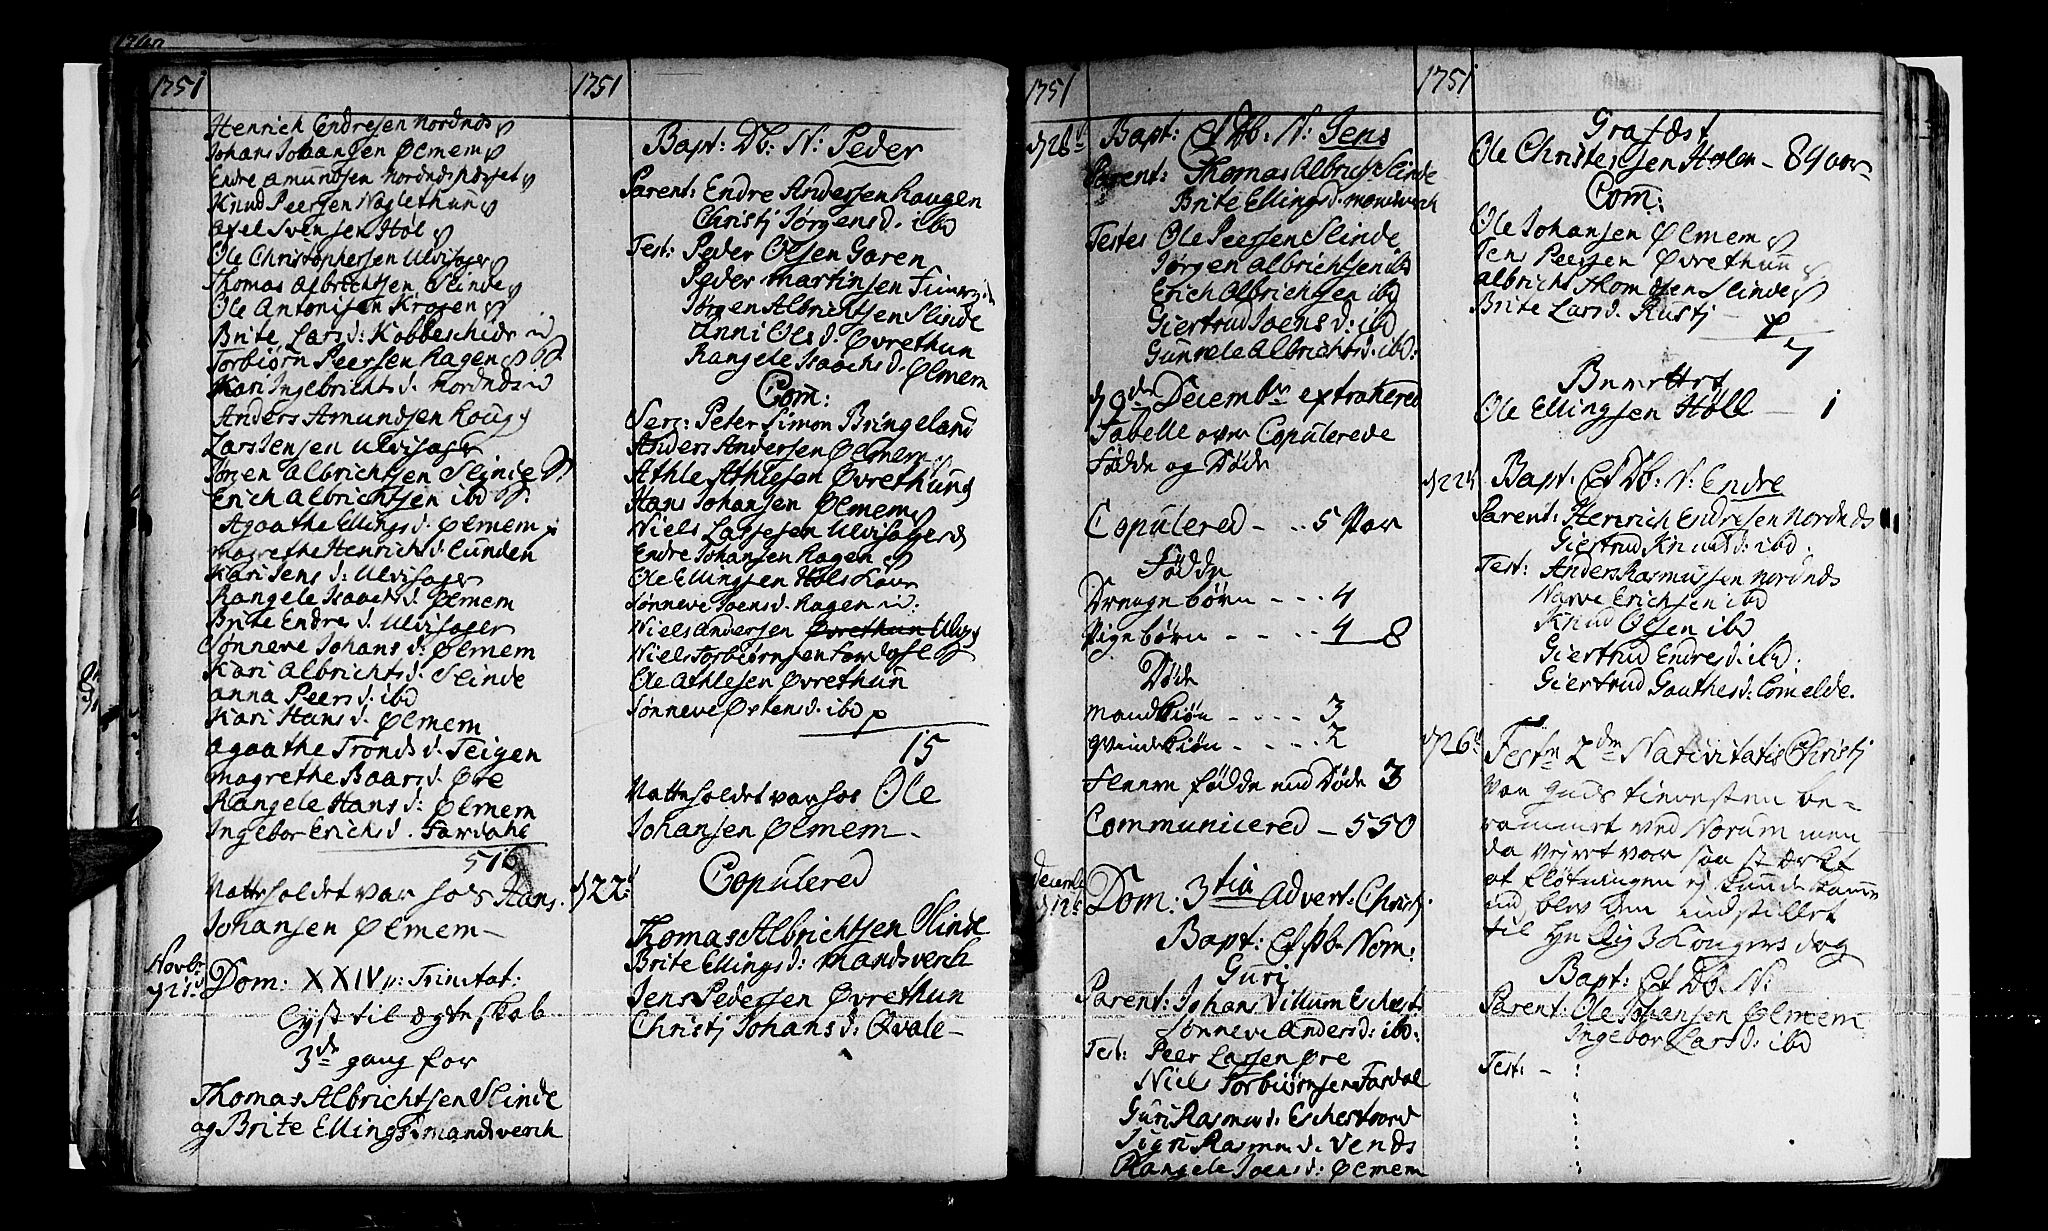 1751
Henrich Endresen Nordnds
Johans Johansen Ølmem
Endre Amundsen Nordnds
Knud Peersen Naglethun
Axel Svensen Høl
Ole Christophersen Ulvisager
Thomas Albrichtsen Slinde
Ole Antonisen Krogen
Brite Lars d: Kobbeschidr
Torbiørn Peersen Hagen
Kari Ingebrichts d. Nordnds
Anders Amundsen Houg
Lars Jensen Ulvisager
Jørgen Albrichtsen Slinde
Erich Albrichtsen ibd
Agaathe Ellings d: Ølmem
Magrethe Henrichs d. Lunden
Kari Jens d: Ulvisager
Rangele Isaachs d. Ølmem
Brite Endre d. Ulvisager
Sønneve Johans d: Ølmem
Kari Albrichts d. Slinde
Anna Peers d: ibd
Kari Hans d. Ølmem
Agaathe Tronds d. Teigen
Magrethe Baars d. Øre
Rangele Hans d: Ølmem
Ingebor Erichs d. Fardahl
516
Natteholdet var hos Hans
Johansen Ølmem
Novbr
d 21
Dom: XXIV p: Trinitat:
Lyst til ægteskab
3de gang for
Thomas Albrichtsen Slinde
og Brite Ellings d. Mandsverch
1751
Bapt: Db: N: Peder
Parent: Endre Anderssen Haugen
Christj Jørgens d. ibd
Test: Peder Olsen Garen
Peder Martinsen
Jørgen Albrichtsen Slinde
Anni Ols d. Øvrethun
Rangele Isaachs d. Ølmem
Com:
Serz: Peter Simon Bringeland
Anders Andersen Ølmem
Athle Athlesen Øvrethun
Hans Johansen Ølmem
Niels Lassesen Ulvisager
Endre Johansen Hagen
Ole Ellingsen
Sønneve Joens d. Hagen
Niels Andersen Øvrethun
Niels Torbiørnsen Fardahl
Ole Athlesen Øvrethun
Sønneve Østens d. ibd
15
Natteholdet var hos Ole
Johansen Ølmem
d 22
Copulered
Thomas Albrichtsen Slinde
Brite Ellings d: Mandsverch
Jens Pedersen Øvrethun
Christj Johans d: Qvale
1751
d 28
Bapt: Et Db: N: Jens
Parent: Thomas Albrichts Slinde
Brite Ellings d. Mandsverch
Testes Ole Peersen Slinde
Jørgen Albrichtsen ibd
Erich Albrichtsen ibd
Giertrud Joens d: ibd
Gunnele Albrichts d. ibd:
d 9de Decembr extrahered
Tabelle over Copulerede
Fødde og Døde
Copulered - - 5 Par
Fødde
Drenge børn - - - 4
Pige børn - - - - 4 8
Døde
Mandkiøn - - - - 3
Qvindekiøn - - - 2
Fleere fødde end Døde 3
Communicered - 550
Decemb
d 12
Dom: 3tia Advent: Christj
Bapt: Et Db. Nom:
Guri
Parent: Johan Villum
Sønneve Anders d: ibd:
Test: Peer Lassen Øre
Niels Torbiørnsen Fardal
Guri Rasmus d:
Sigri Rasmus d. Vends
Rangele Joens d: Ølmem
1751
Grafæst
Ole Christensen Holen - 89 aar
Com:
Ole Johansen Ølmem
Jens Peersen Øvrethun
Albricht Thomasen Slinde
Brite Lars d. Rustj
4
Ole Ellingsen Høll - 1
d 22
Bapt: Et Db: N: Endre
Parent: Henrich Endresen Nordnds
Giertrud Knuds d: ibd:
Test: Anders Rasmussen Nordnds
Narve Erichsen ibd
Knud Olsen ibd
Giertrud Endres d: ibd:
Giertrud Gauthes d: Lomelde.
d 26
Festo 2do Nativitatis Christj
Var Guds tienesten be-
rammet ved Norum men
da vejret var saa stærkt
at fløtningen ej kunde komme
ud blev den indstillet
til Hellig 3 Kongers dag
Bapt: Et Db. N:
Parent: Ole Johansen Ølmem
Ingebor Lars d: ibd
Test: -